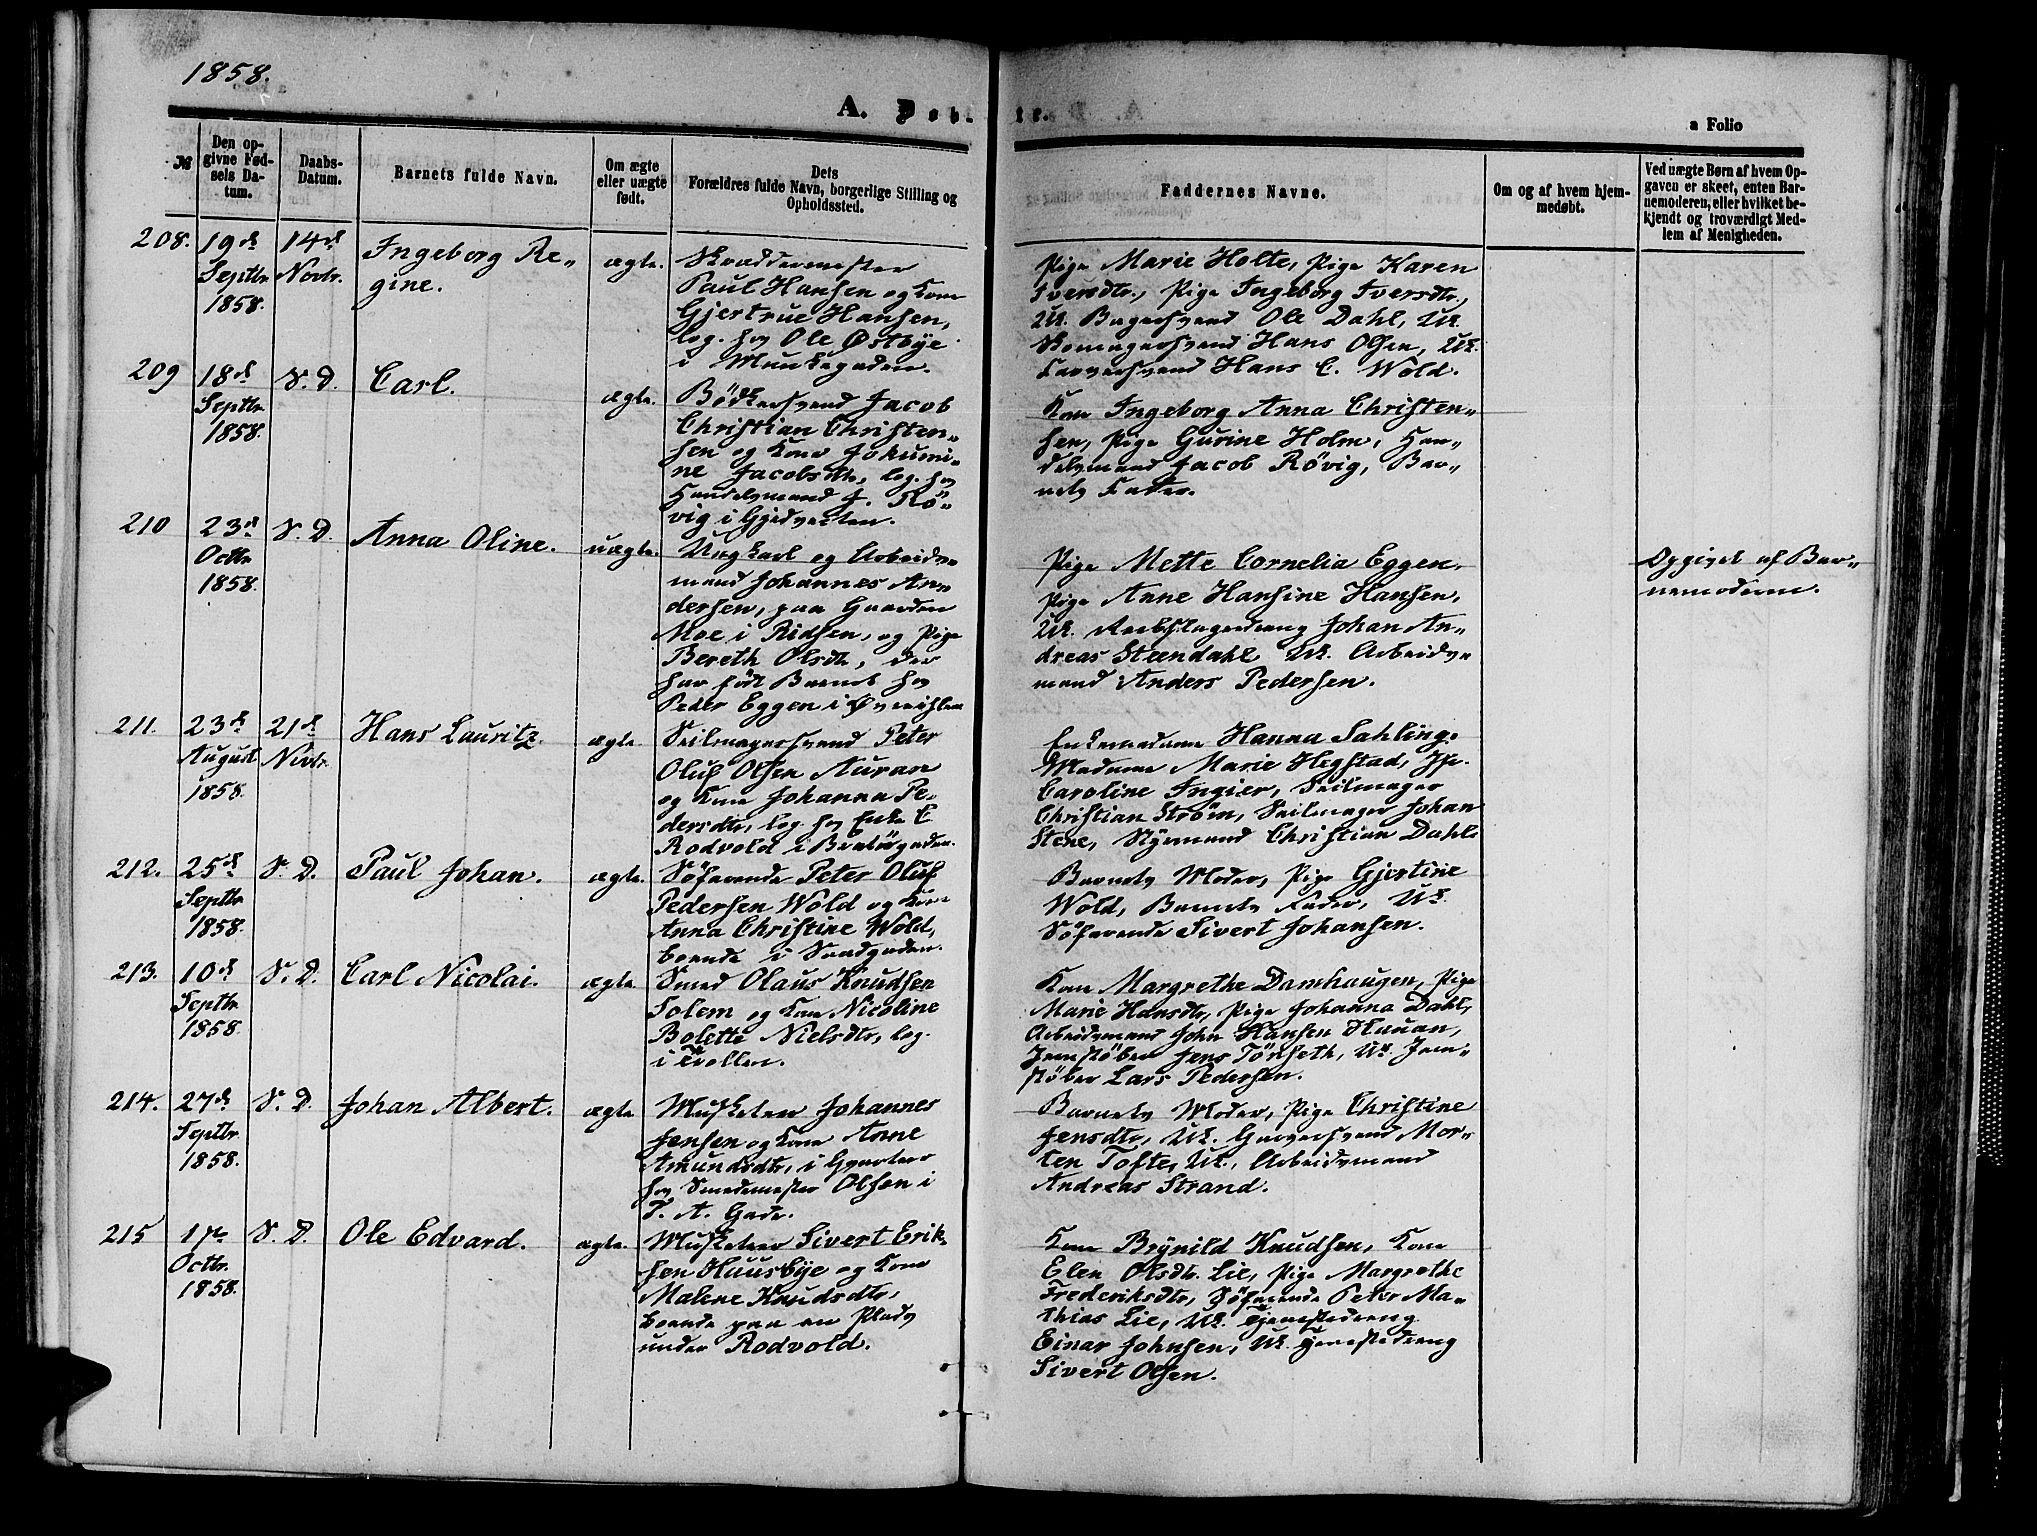 1858.
A. Døb-
te.
a Folio
№
Den op-
givne Fød-
sels Da-
tum.
Daabs-
Datum.
Barnets fulde Navn.
Om ægte
eller uægte
født.
Dets
Forældres fulde Navn, borgerlige Stilling og
Opholdssted.
Faddernes Navne.
Om og af hvem hjem-
medøbt.
Ved uægte Børn af hvem Op-
gaven er skeet, enten Bar-
nemoderen, eller hvilket be-
kjendt og troværdigt Med-
lem af Menigheden.
208.
19d
Septbr
1858.
14d
Novbr.
Ingeborg Re-
gine.
ægte.
Skræddermester
Paul Hansen og Kone
Gjertrue Hansen,
log. hos Ole Østbye
i Munkegaden.
Pige Marie Holte, Pige Karen
Iversdtr., Pige Ingeborg Iversdtr.,
Uk. Bagersvend Ole Dahl, Uk
Skomagersvend Hans Olsen, Uk.
Farversvend Hans C. Wold.
209
18d
Septbr
1858.
S. D.
Carl.
ægte.
Bödkersvend Jacob
Christian Christen-
sen og Kone Jokumi-
ne Jacobsdtr, log. hos
Handelsmand J. Rö-
vig i Gjedvexten.
Kone Ingeborg Anna Christen-
sen, Pige Gurine Holm, Han-
delsmand Jacob Rövig, Bar-
nets Fader.
210
23d
Octbr
1858.
S. D.
Anna Oline.
uægte.
Ungkarl og Arbeids-
mand Johannes An-
dersen, paa Gaarden
Moe i Ridsen, og Pige
Bereth Olsdtr, der
har født Barnet hos
Peder Eggen i Øverislen
Pige Mette Cornelia Eggen.
Pige Anne Hansine Hansen,
Uk. Reebslagerdreng Johan An-
dreas Steendahl, Uk. Arbeids-
mand Anders Pedersen.
Opgivet af Bar-
nemoderen.
211.
23d
August
1858.
21d
Novbr.
Hans Lauritz.
ægte
Seilmagersvend Peter
Oluf Olsen Auran
og Kone Johanna Pe-
dersdtr, log. hos Enke E
Rodvold i Bratörgaden.
Enkemadame Hanna Sahling.
Madame Marie Hegstad, Jfr.
Caroline Ingier, Seilmager
Christian Ström, Seilmager Johan
Stene, Styrmand Christian Dahl
212.
25d
Septbr
1858.
S. D.
Paul Johan.
ægte.
Söfarende Peter Oluf
Pedersen Wold og Kone
Anna Christine Wold,
boende i Sandgaden.
Barnets Moder, Pige Gjertine
Wold, Barnets Fader, Uk.
Söfarende Sivert Johansen.
213.
10d
Septbr
1858.
S. D.
Carl Nicolai.
ægte
Smed Olaus Knudsen
Solem og Kone Nicoline
Bolette Nielsdtr, log.
i Trollen.
Kone Margrethe Damhaugen, Pige
Marie Hansdtr, Pige Johanna Dahl,
Arbeidsmand John Hansen Hauan,
Jernstöber Jens Tönseth, Uk. Jern-
stöber Lars Pedersen.
214.
27d
Septbr.
1858.
S. D.
Johan Albert.
ægte
Musketeer Johannes
Jensen og Kone Anne
Amundsdtr, i Qvarteer
hos Smedemester Olsen i
T. A. Gade.
Barnets Moder, Pige Christine
Jensdtr, Uk. Garversvend Mor-
ten Tofte, Uk., Arbeidsmand
Andreas Strand.
215
1ste
Octbr.
1858.
S. D.
Ole Edvard.
ægte.
Musketeer Sivert Erik-
sen Huusbye og Kone
Malene Knudsdtr,
boende paa en Plads
under Rodvold.
Kone Brynild Knudsen, Kone
Elen Olsdtr. Lie, Pige Margrethe
Frederiksdtr, Söfarende Peter Ma-
thias Lie, Uk. Tjenestedreng
Einar Johnsen, Uk. Tjenestedreng
Sivert Olsen.